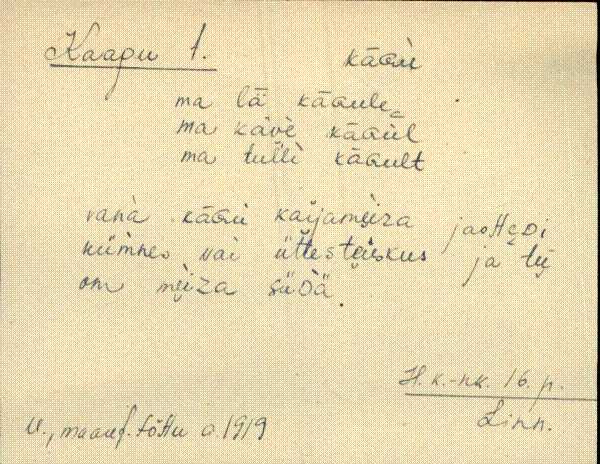 Kaapu 1.
käöü
ma lä käöule
ma käve käöül
ma tulli käöult
vana käöü kaijameiza jaotteDi
kümnes vai üttestõiskus ja tü
om meiza süDä.
H. k.-nk. 16. p.
Linn.
V., maauf. tõttu a. 1919